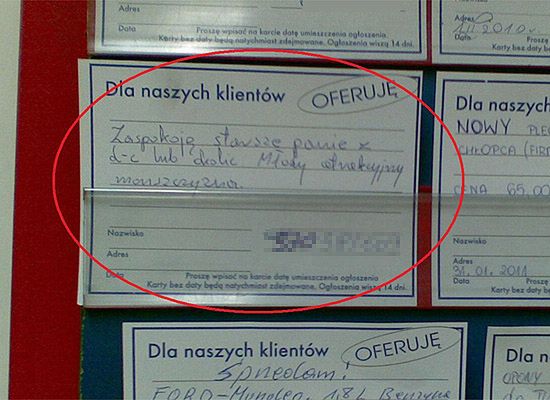 Adres
Data
Proszę wpisać na karcie datę umieszczenia ogłoszenia
Karty bez daty będą natychmiast zdejmowane. Ogłoszenia wiszą 14 dni.
Adres
Data 1.II.2010r.
Karty bez daty będą
Dla naszych klientów OFERUJĘ
Zaspokoję starsze panie z
d-c lub okolic Młody atrakcyjny
Nazwisko
Adres
Data
Proszę wpisać na karcie datę umieszczenia ogłoszenia
Karty bez daty będą natychmiast zdejmowane. Ogłoszenia wiszą 14 dni.
Dla naszych
NOWY
CHŁOPCA
CENA 65.00
Nazwisko
Adres
Data 31.01.2011
Karty bez daty będą
Dla naszych klientów OFERUJĘ
Sprzedam!
FORD 1.8 Benzyna
Dla n
OPONY